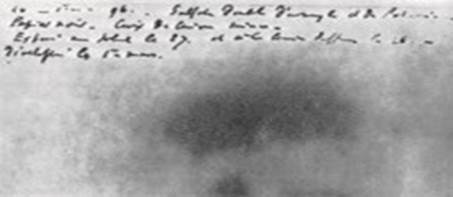 96. Sulfate Double d'uranyle et de Potassium
Papier noir. Croix de Cuivre mince.
Exposé au soleil le 27. et à la lumière diffuse le 26.
Développé le 1er mars.